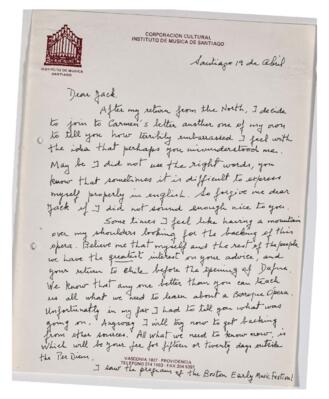 CORPORACION CULTURAL
INSTITUTO DE MUSICA DE SANTIAGO
INSTITUTO DE MUSICA
SANTIAGO
Santiago 19 de Abril
Dear Jack
After my return from the North, I decide
to join to Carmen's letter another one of my own
to tell you how terribly embarassed I feel with
the idea that perhaps you misunderstood me.
May be I did not use the right words, you
know that sometimes it is difficult to express
myself properly in english. So forgive me dear
Jack if I did not sound enough nice to you.
Some times I feel like having a mountain
over my shoulders looking for the backing of this
opera. Believe me that myself and the rest of the people
we have the greatest interest on your advice, and
your return to Chile before the opening of Dafne.
We know that any one better than you can teach
us all what we need to learn about a Baroque Opera
Unfortunatly in my fax I had to tell you what was
going on. Anyway I will try now to get backing
from other sources. All what we need to know now, is
which will be your fee for fifteen or twenty days outside
the Per Diem.
VASCONIA 1807 - PROVIDENCIA
I saw the program of the Boston Early Music Festival!